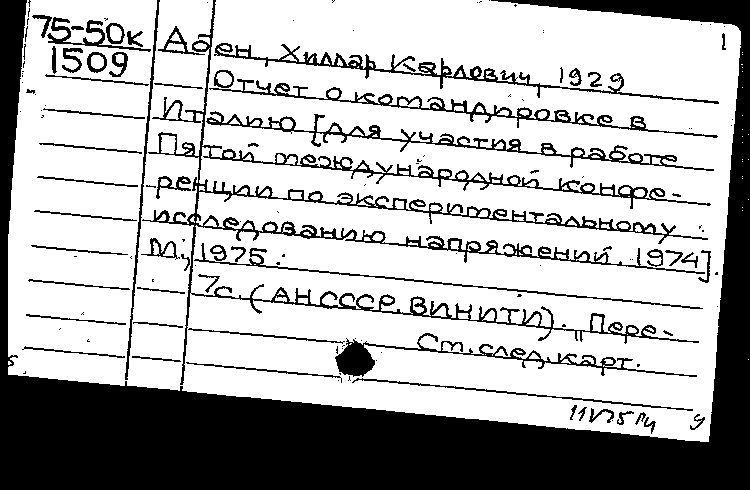 1
75-50к
1509
Абен, Хиллар Карлович, 1929
Отчет о командировке в
Италию [для участия в работе
Пятой международной конфе-
ренции по экспериментальному
исследованию напряжений. 1974].
М., 1975.
7с. (АН СССР. ВИНИТИ). "Пере-
См. след. карт.